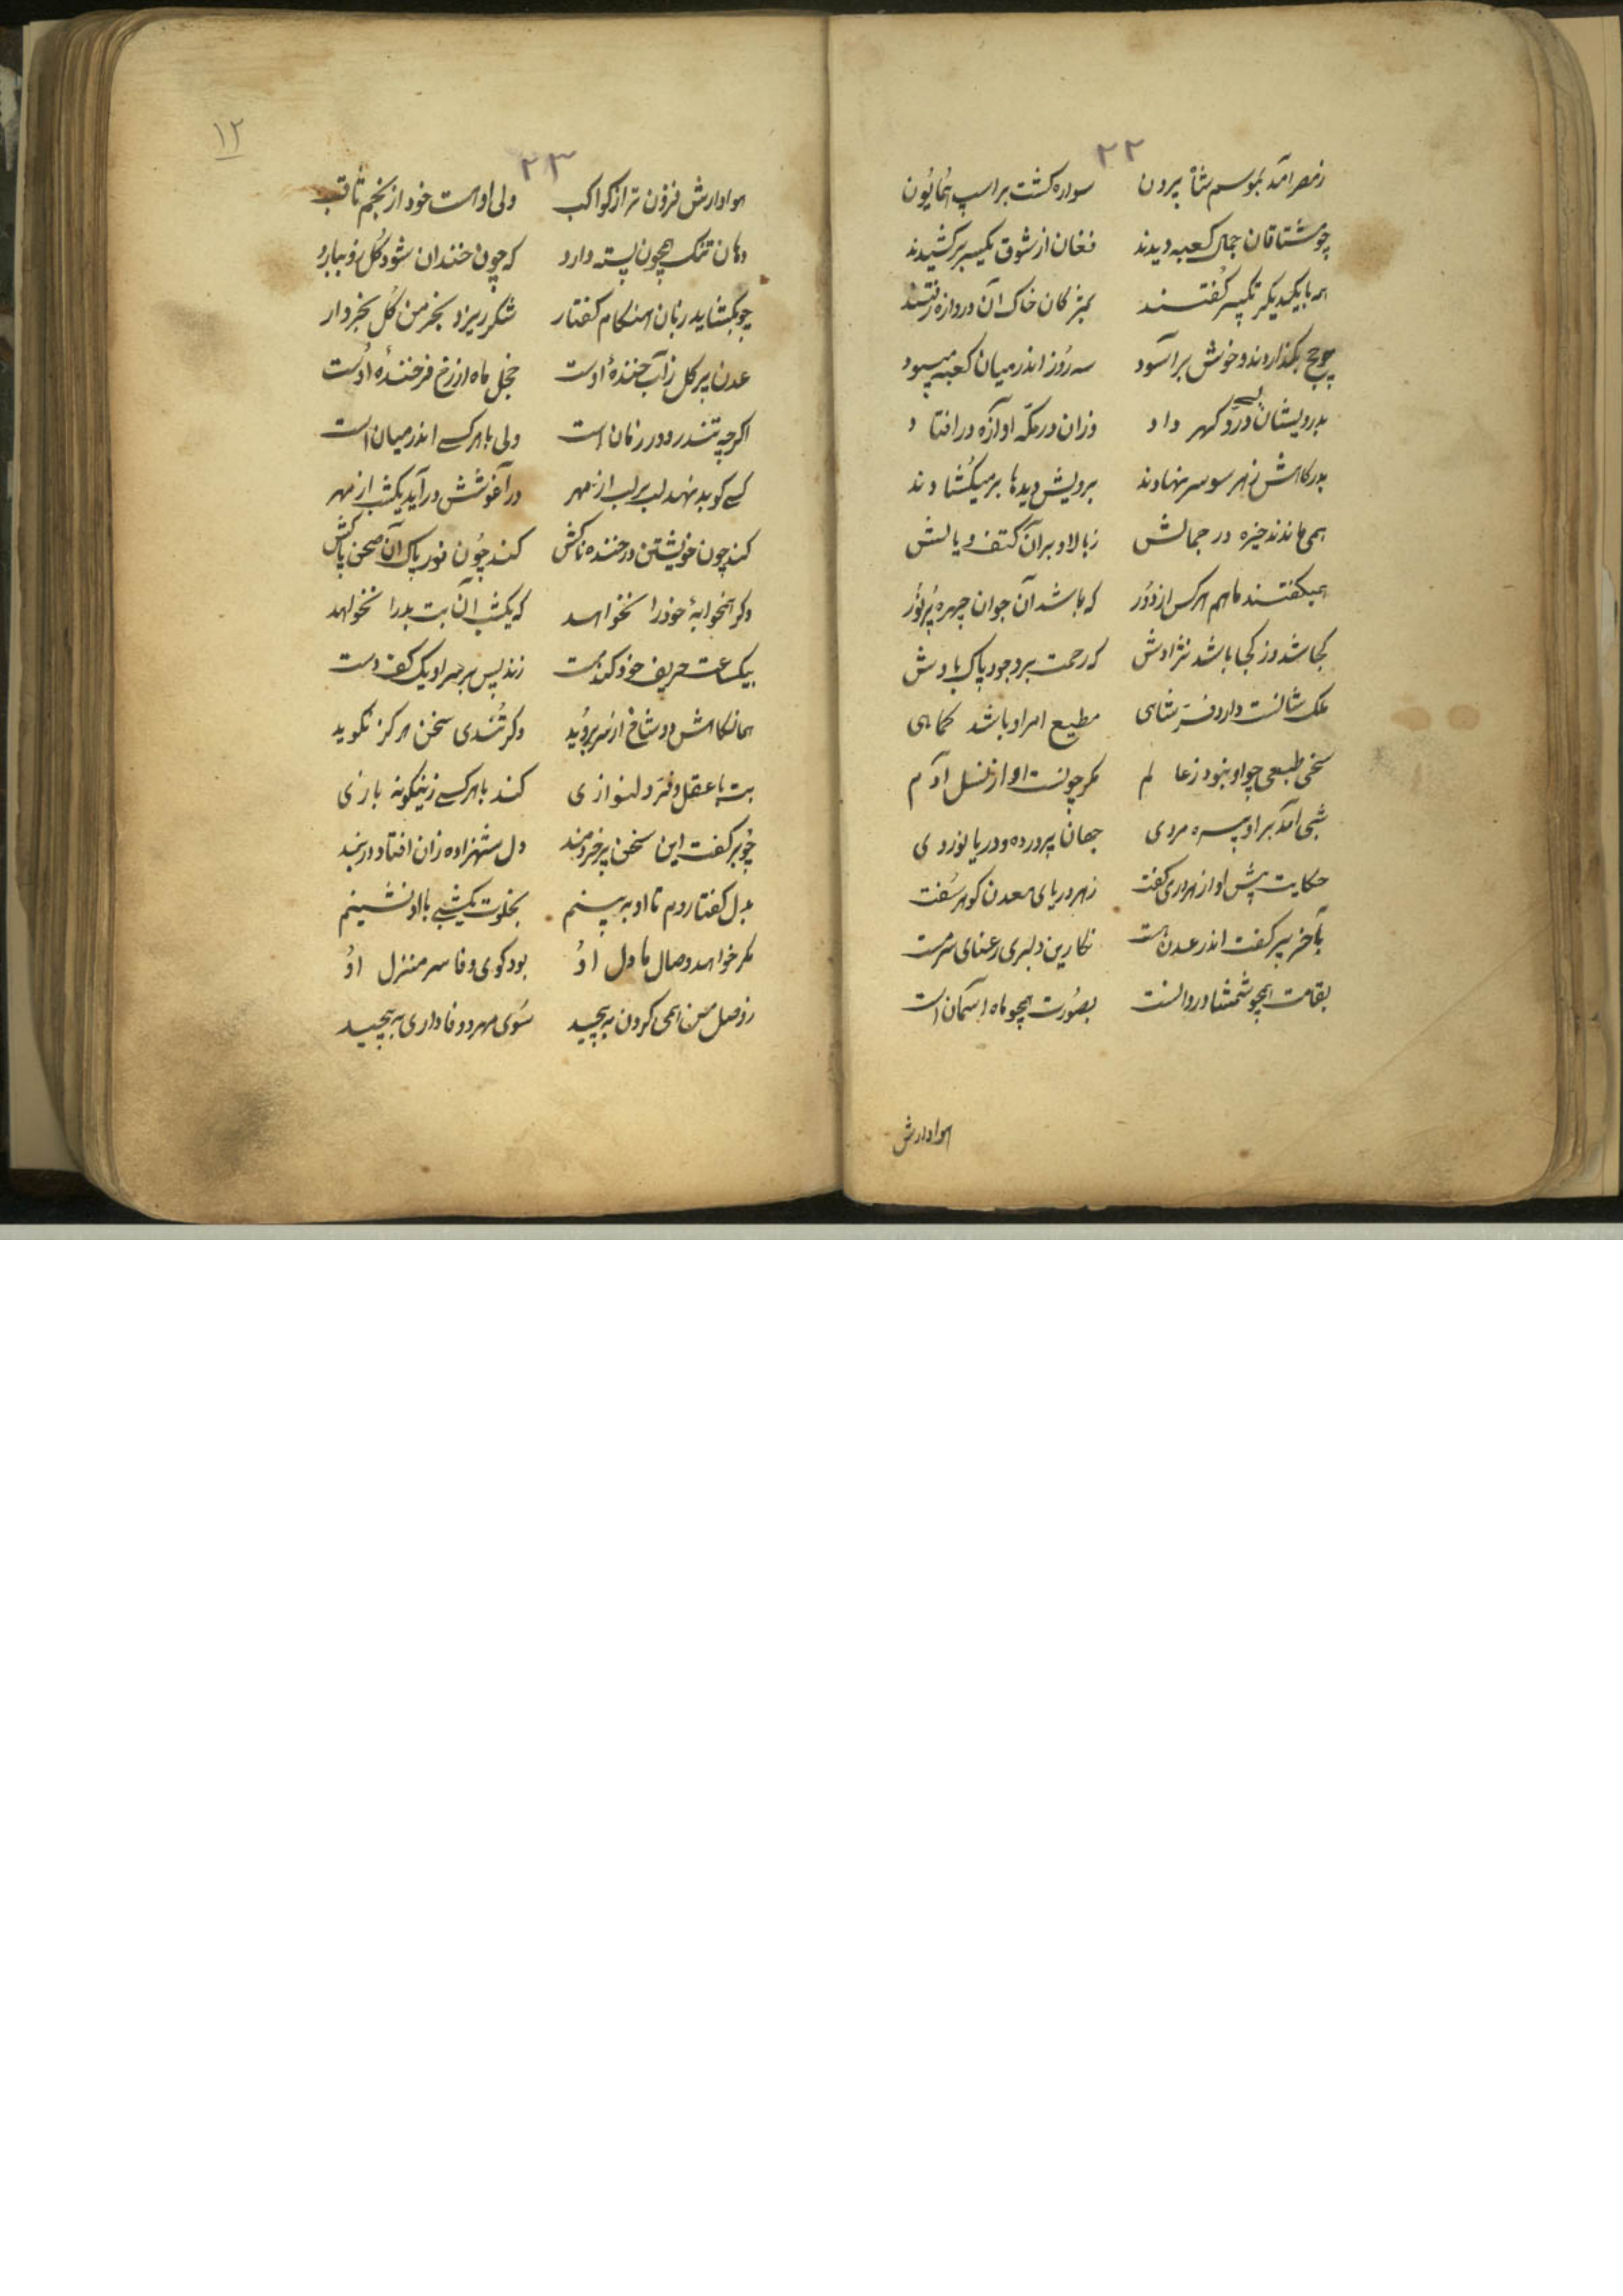 ۲۲
ز مصر آمد بموسم شاه بیرون سواره کشت بر اسپ همایون
چو مشتاقان جمال کعبه دیدند فغان از شوق یکسر برکشیدند
همه با یکدیکر تکبیر گفتند بمژکان خاک آن دروازه رفتند
چو حج بکذاردند و خوش برآسود سه روز اندر میان کعبه میبود
بدرویشان بسی در و کهر داد وزان در مکه اوآزه درافتاد
بدرکاهش ز هر سو سر نهادند برویش دیدها بر میکشادند
همی ماندند خیره در جمالش ز بالا و بر آن کتف و یالش
همیکفتند با هم هرکس از دور که باشد آن جوان چهره پرنور
کجا شد وز کجا باشد نژادش که رحمت بر وجود پاک بادش
ملک شانست دارد فر شاهی مطیع امر او باشد کماهی
سخی طبعی چو او نبود ز عالم مکر چونست او از نسل آدم
شبی آمد بر او پیره مردی جهان پرورده و دریا نوردی
حکایت پیش او از هر دری کفت ز هر دریای معدن کوهر سفت
بآخر پیر کفت اندر عدن هست نکارین دلبری رعنای سرمست
بقامت همچو شمشاد روانست بصورت همچو ماه آسمان است
هوادارش
۱۲
۲۳
هوادارش فزون تر از کواکب ولی او است خود از نجم ثاقب
دهان تنک همچون پسته دارد که چون خندان شود کل زو ببارد
چو بکشاید زبان هنکام کفتار شکر ریزد بخرمن کل بخروار
عدن پر کل ز آب خنده اوست خجل ماه از رخ فرخنده اوست
اکرچه تند در دور زمان است ولی با هر کسی اندر میان است
کسی کو بد نهد لب بر لب از مهر در آغوشش درآید یکشب از مهر
کند چون خویشتن در خنده ناکش کند چون نور پاک آن صحن پاکش
دکر همخوابهٔ خود را نخواهد که یکشب آن بت بد را نخواهد
بیکساعت حریف خود کند مست زند پس بر سر او یک کف دست
همانکاهش دو شاخ از سر بروید دکر تندی سخن هرکز نکوید
بت با عقل و فر و دلنوازی کند با هر کسی زینکونه بازی
چو برکفت این سخن پیر خردمند دل شهزاده زان افتاد در بند
بدل کفتا روم تا او ببینم بخلوت یکشبی با او نشینم
مکر خواهد وصال ما دل او بود کوی وفا سر منزل او
ز وصل من همی کردن به پیچید سوی مهر و وفاداری به پیچید